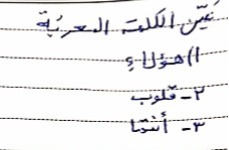 عيّن الكلمة المعربَة
١) هؤلاءِ
٢- قلوب
٣- أنتما